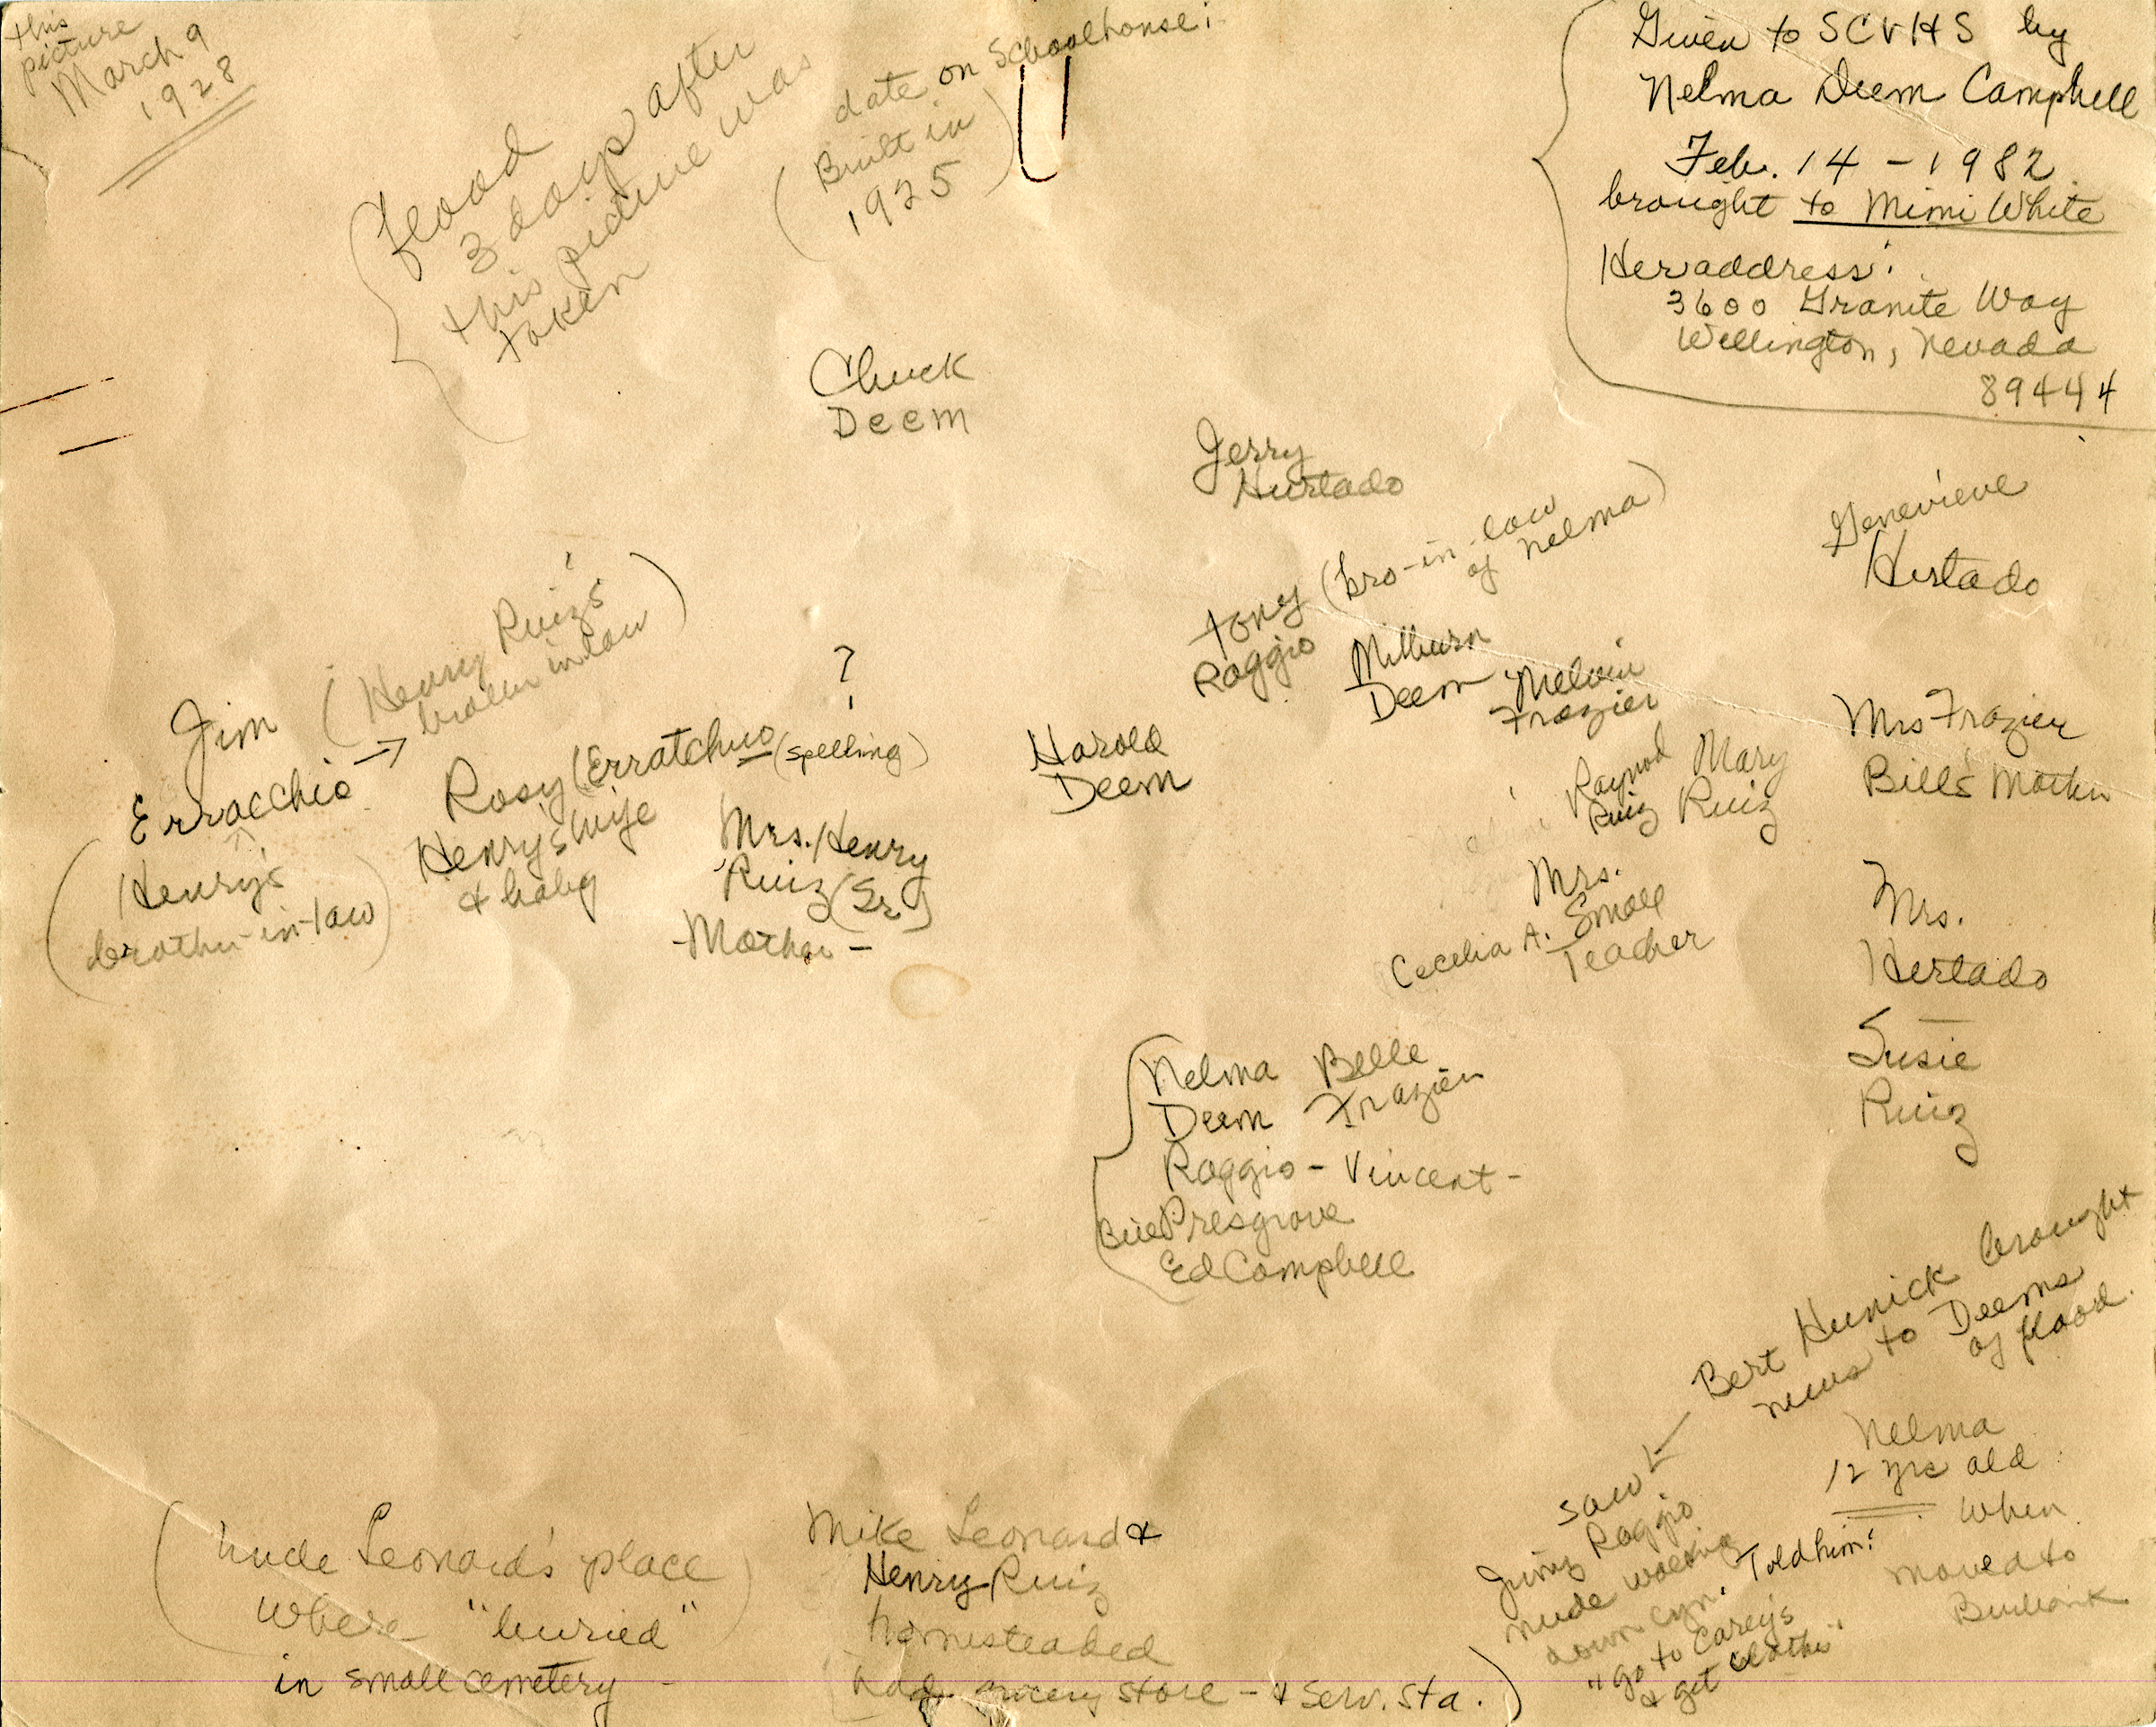 this
picture
March 9
1928
flood
3 days after
this picture was
taken
(date on Schoolhouse:
Built in
1925)
Given to SCVHS by
Nelma Deem Campbell
Feb. 14 - 1982
brought to Mimi White
Her address:
3600 Granite Way
Wellington, Nevada
89444
Chuck
Deem
Jerry
Hurtado
Genevieve
Hurtado
Tony (bro-in-law
of Nelma)
Raggio
Milburn
Deem
Melvin
Frazier
Mrs Frazier
Bill's Mother
Jim
Erracchio →
(Henry Ruiz's
brother in law)
(Henry's
brother-in-law)
?
Rosy (Erratchuo (spelling)
Henry's Wife
& baby
Mrs. Henry
Ruiz (Sr)
-Mother-
Harold
Deem
Raymod
Ruiz
Mary
Ruiz
Mrs.
Cecelia A. Small
Teacher
Mrs.
Hurtado
Susie
Ruiz
Nelma Belle
Deem Frazier
Raggio - Vincent -
Bill Presgrove
Ed Campbell
Bert Hunick brought
news to Deems
of flood.
saw
Jimmy Raggio
nude walking
down cyn. Told him:
"go to Carey's
& get clothes"
Nelma
12 yrs old
when
moved to
Burbank
(nude Leonard's place
where "buried"
in small cemetery -
Mike Leonard &
Henry Ruiz
homesteaded
(had grocery store - & serv. sta.)